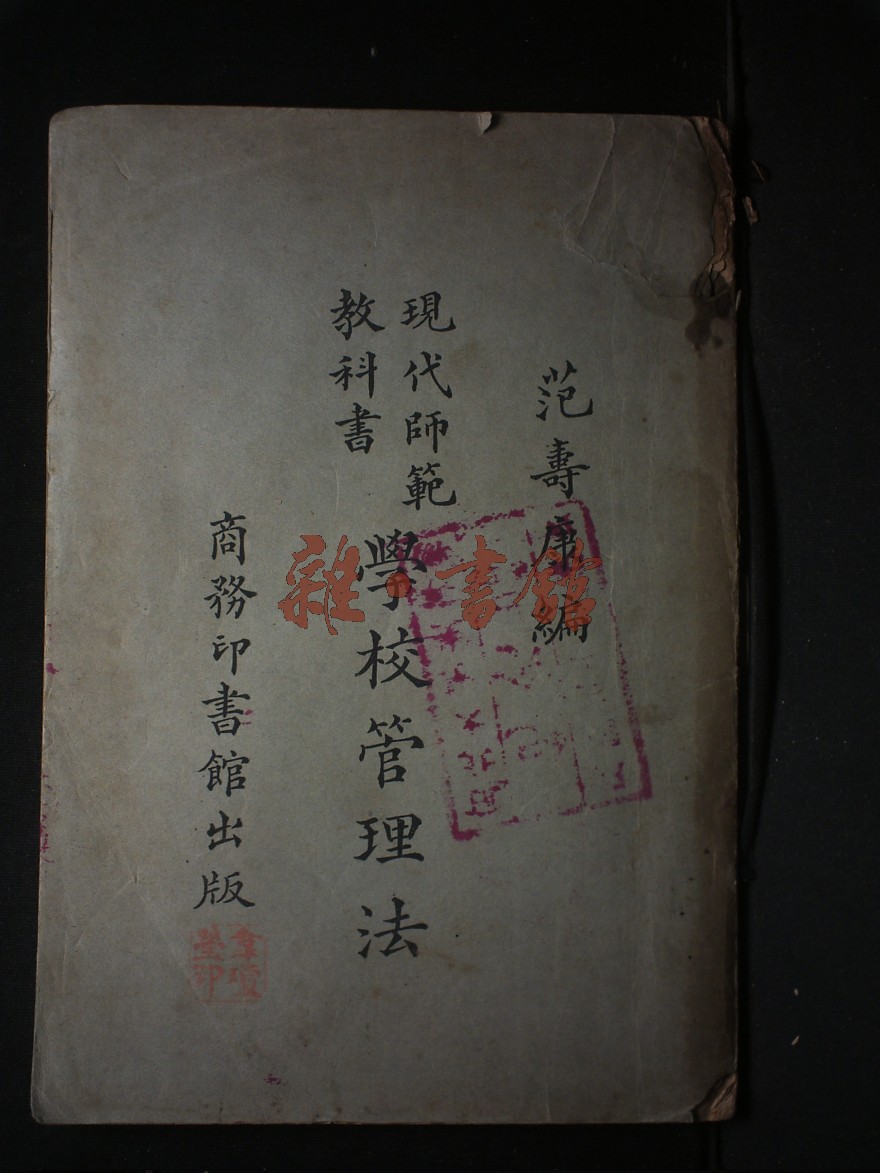 范壽康編
現代師範
教科書
學校管理法
商務印書館出版
雜·書館